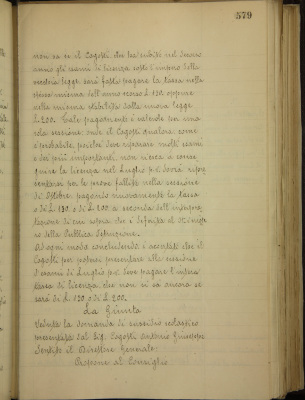 579
non sa se il Cagolli che ha subito nel scorso
anno gli esami di licenza sotto l'impero della
vecchia legge sarà fatto pagare la tassa nella
stessa misura dell'anno scorso L. 120 oppure
nella misura stabilita dalla nuova legge
L. 200. Tale pagamento è valevole per una
sola sessione onde il Cagolli qualora come
è probabile perchè deve riparare molti esami
e dei più importanti non riesca a conse,
guire la licenza nel Luglio p.v. dovrà ripre
sentarsi per le prove fallite nella sessione
di Ottobre pagando nuovamente la tassa
o di L. 120 o di L. 200 a seconda dell'interpre,
tazione di cui sopra che è deferita al
della Pubblica Istruzione.
Ad ogni modo concludendo è accertato che il
Cagolli per potersi presentare alla sessione
d'esami di Luglio p.v. deve pagare l'intera
tassa di licenza, che non si sa ancora se
sarà di L. 120 o di L. 200.
La Giunta
Veduta la domanda di sussidio scolastico
presentata dal Sig. Cagolli Antonio Giuseppe
Sentito il Direttore Generale
Propone al Consiglio